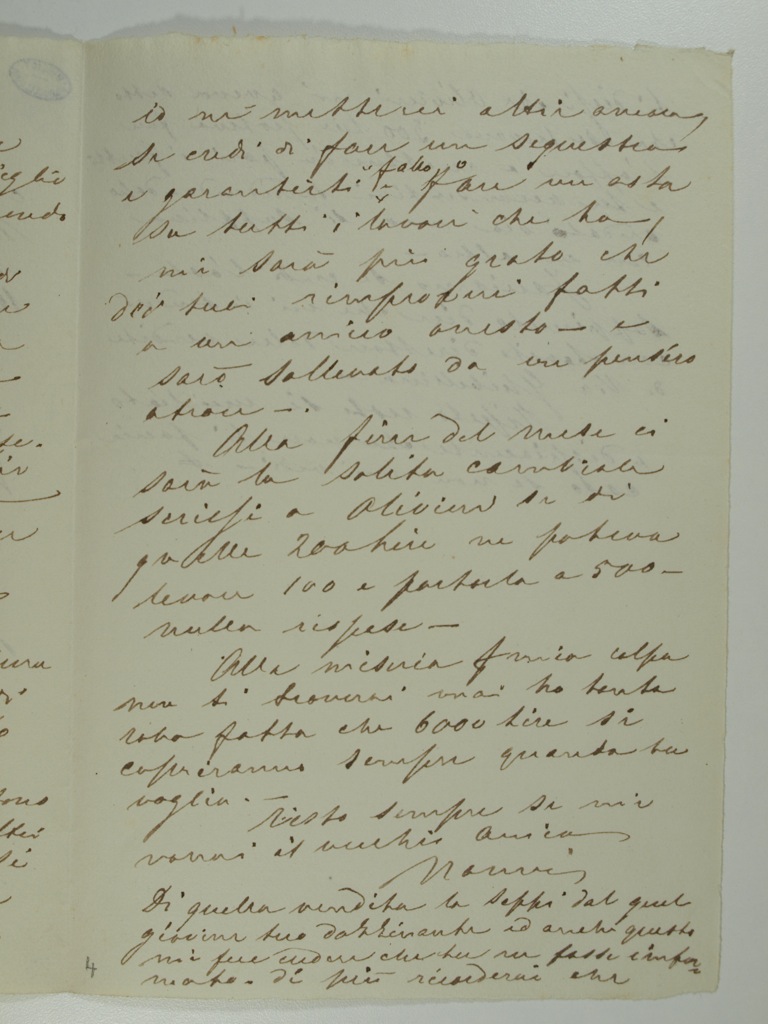 io ne metterei altri ancora,
se credi di fare un sequestro
e garantirti "fallo" o fare un asta
su tutti i lavori che ho,
mi sarà più grato che
dei tuoi rimproveri fatti
a un amico onesto — e
sarò sollevato da un pensiero
atroce —.
Alla fine del mese ci
sarà la solita cambiale
scrissi a Olivieri se di
quelle 200 lire ne poteva
levare 100 e portarla a 500 —
nulla rispose —
Alla miseria mia colpa
non ti troverai mai ho tanta
roba fatta che 6000 lire si
copriranno sempre quando tu
voglia. —
Resto sempre se mi
vorrai il vecchio amico
Nanni
Di quella vendita lo seppi dal quel
giovine tuo dozzinante ed anche questo
mi fece credere che tu ne fosse infor=
mato. di più ricorderai che
4